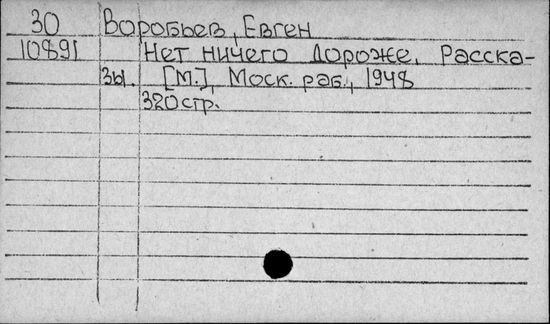 30 Воробьев, Евген
10891 Нет ничего дороже. Расска-
зы. [М.], Моск. раб., 1948
320стр.